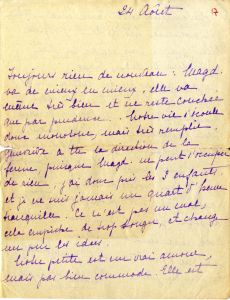 24 Août
Toujours rien de nouveau : Magd.
va de mieux en mieux, elle va
même très bien et ne reste couchée
que par prudence. Notre vie s'écoule
donc monotone, mais très remplie.
Geneviève a tte la direction de la
ferme, puisque Magd. ne peut s'occuper
de rien, j'ai donc pris les 3 enfants
et je ne suis jamais un quart d'heure
tranquille. Ce n'est pas un mal,
cela empêche de trop songer, et change
un peu les idées.
Notre petite est un vrai amour,
mais pas bien commode. Elle est